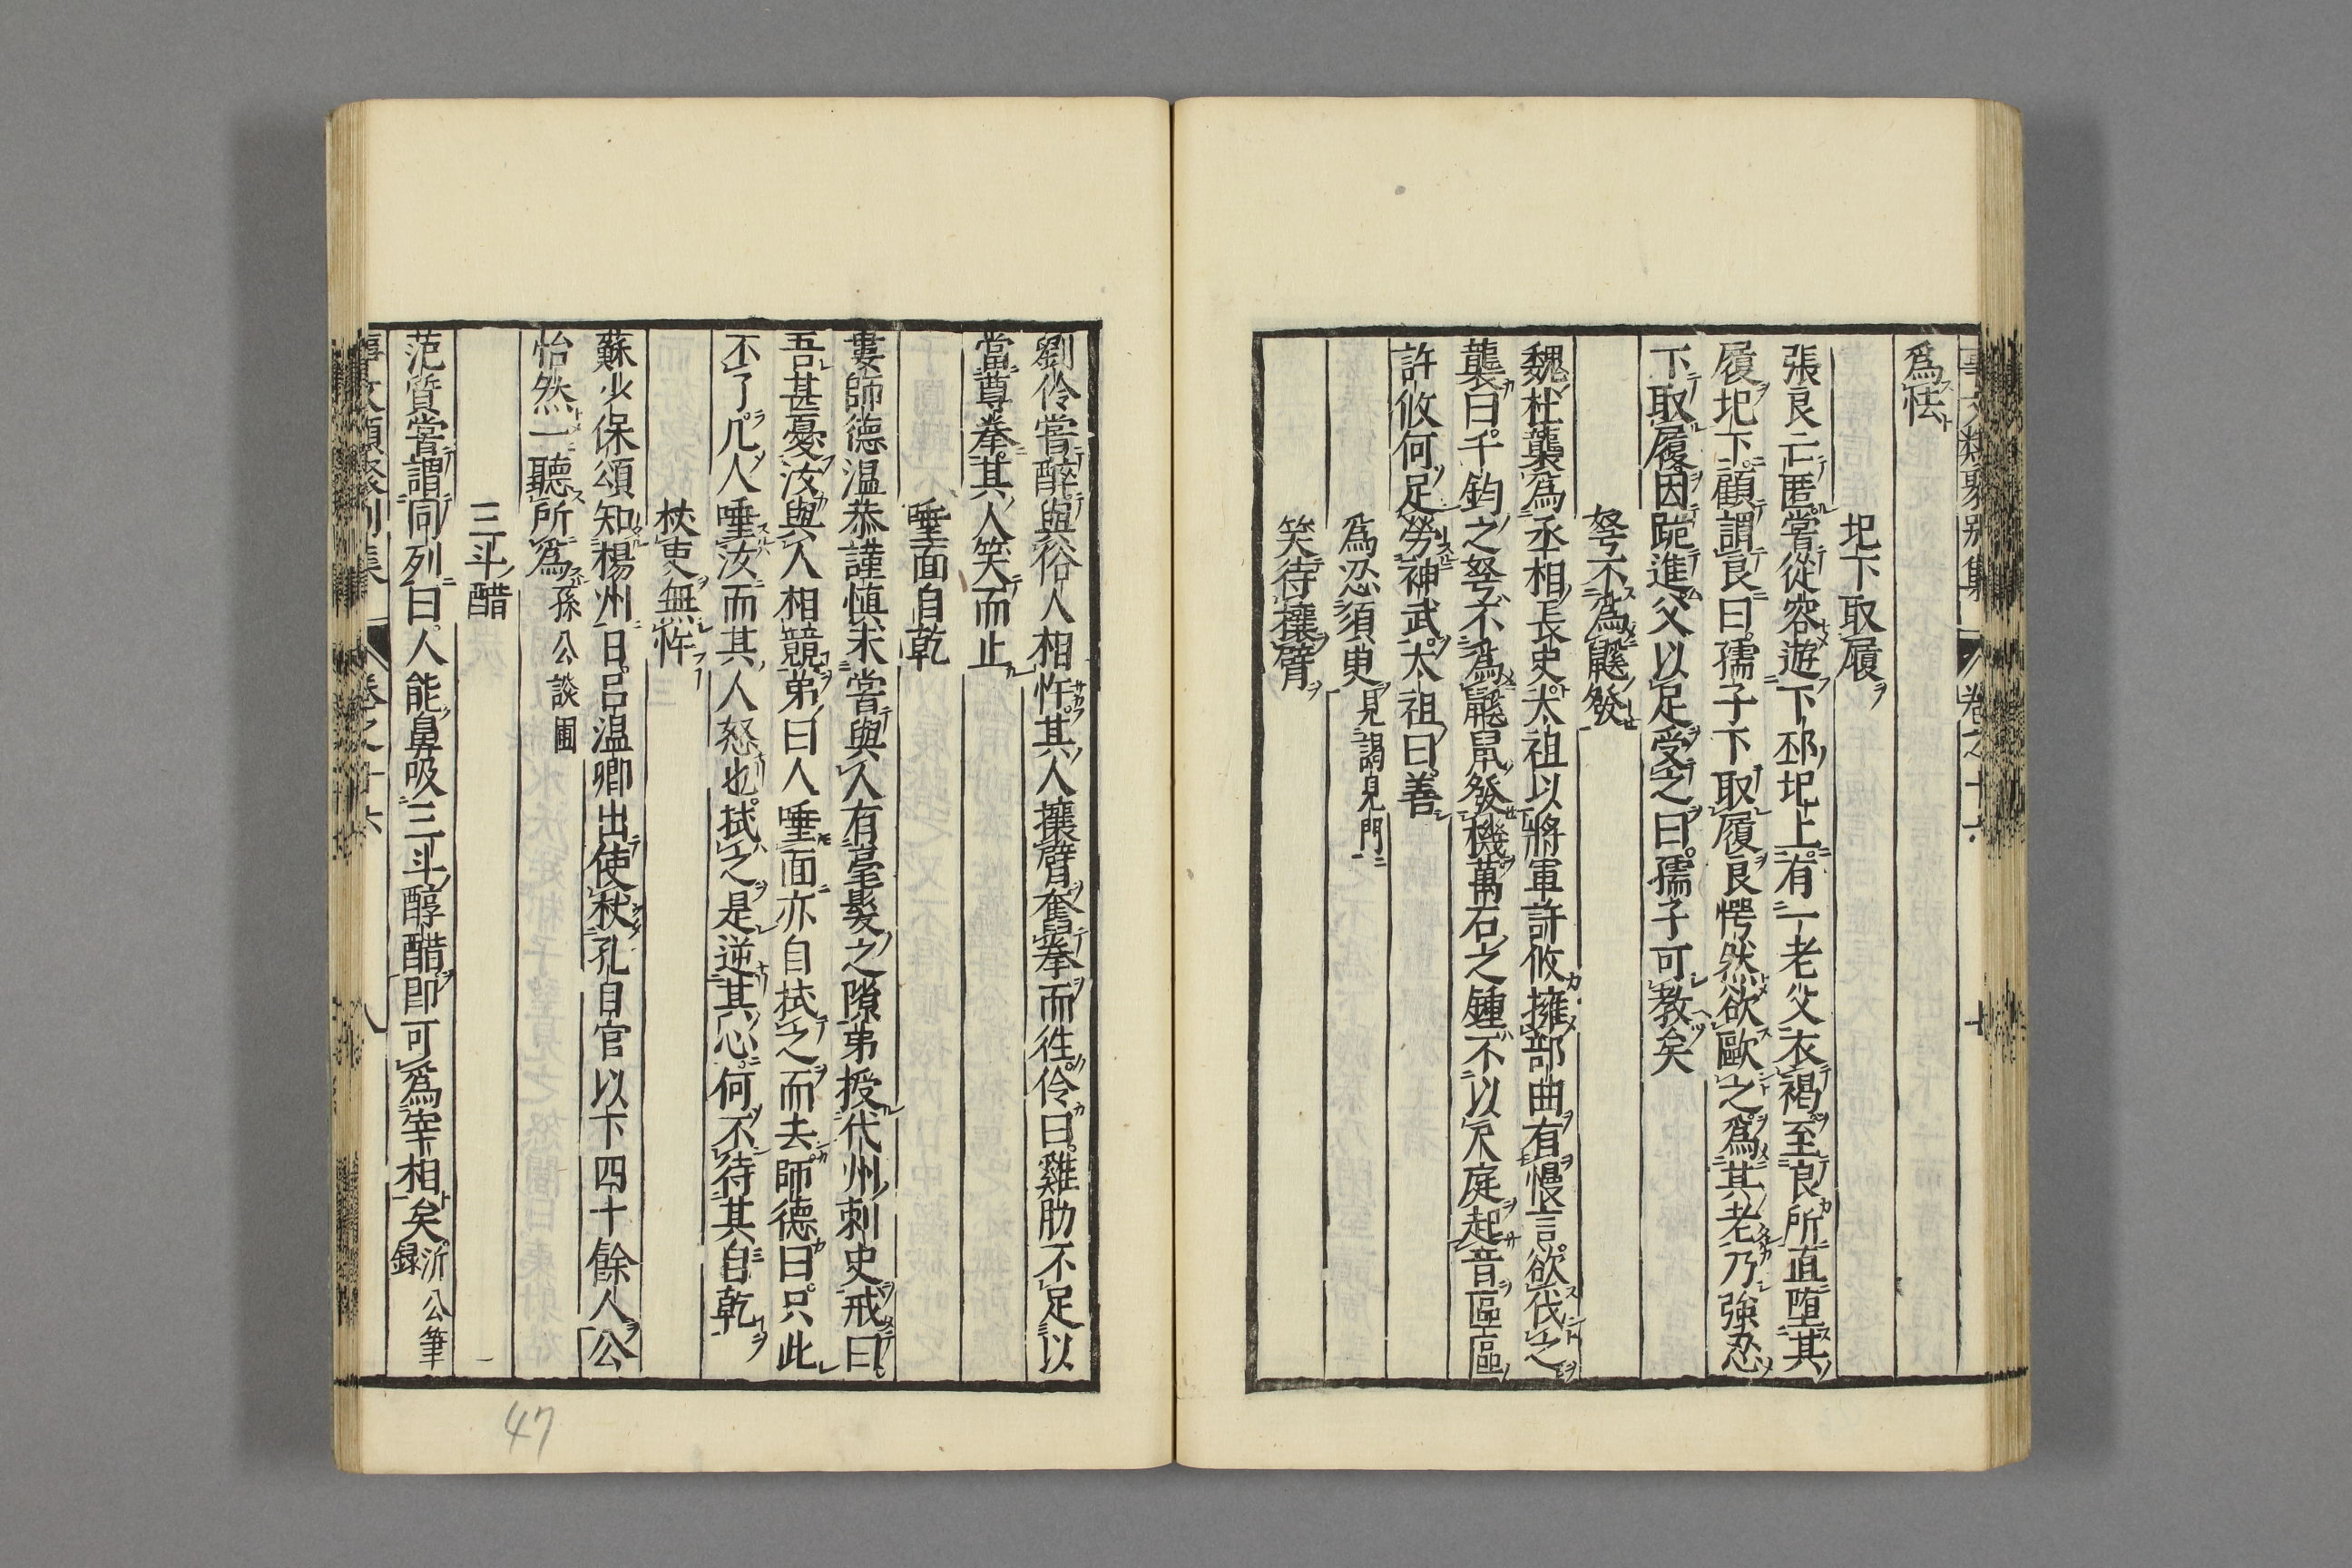 事文類聚別集 卷之十六 七
爲怯
圯下取履
張良亡匿嘗從容遊下邳圯上有一老父衣褐至良所直墮其
履圯下顧謂良曰孺子下取履良愕然欲歐之爲其老乃強忍
下取履因跪進父以足受之曰孺子可教矣
弩不爲鼷發
魏杜襲爲丞相長史太祖以將軍許攸擁部曲有慢言欲伐之
襲曰千鈞之弩不爲鼷鼠發機萬石之鍾不以尺庭起音區區
許攸何足勞神武太祖曰善
爲忍須臾見謁見門
笑待攘臂
劉伶嘗醉與俗人相忤其人攘臂奮拳而徃伶曰雞肋不足以
當尊拳其人笑而止
唾面自乾
婁師德温恭謹慎未嘗與人有毫髮之隙弟授代州刺史戒曰
吾甚憂汝與人相競弟曰人唾面亦自拭之而去師德曰只此
不了凡人唾汝而其人怒也拭之是逆其心何不待其自乾
杖吏無忤
蘇少保頌知楊州日呂温卿出使杖孔目官以下四十餘人公
怡然一聽所爲孫公談圃
三斗醋
范質嘗謂同列曰人能鼻吸三斗醇醋即可爲宰相矣沂公筆録
事文類聚別集 卷之十六 八
47